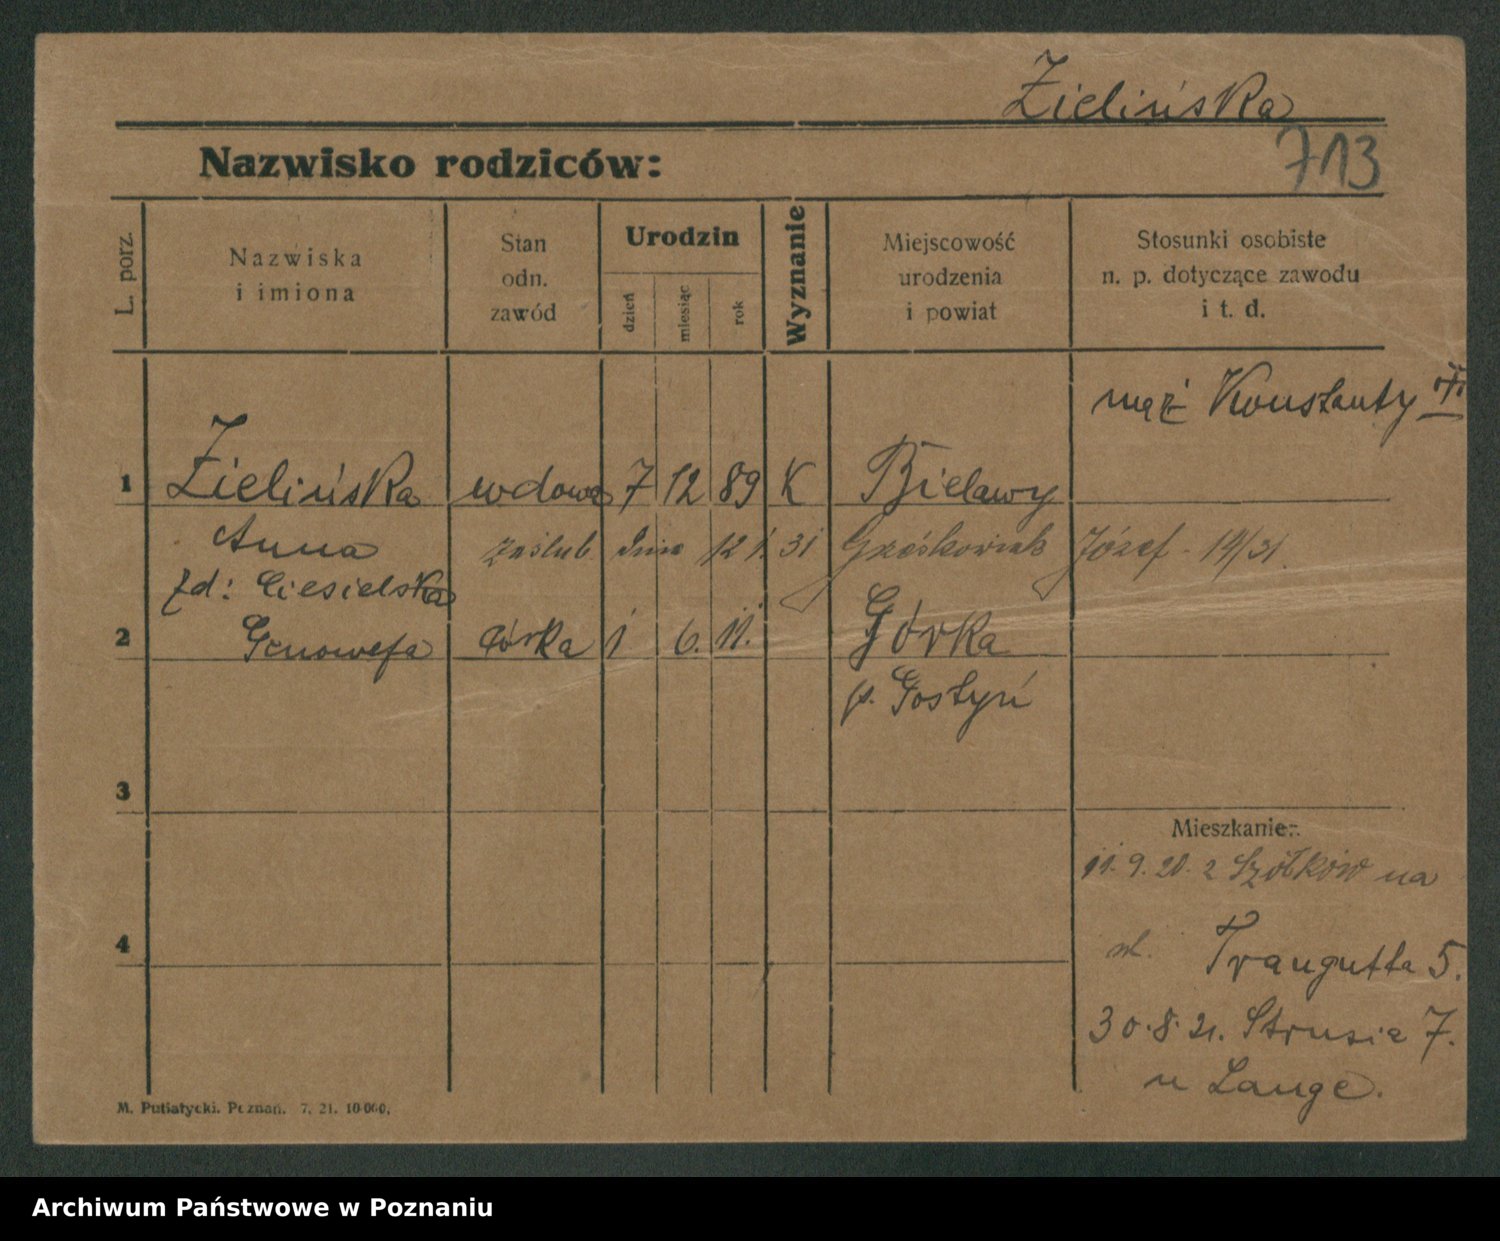 Zielińska
Nazwisko rodziców:
713
L. porz.
Nazwiska
i imiona
Stan
odn.
zawód
Urodzin
dzień
miesiąc
rok
Wyznanie
Miejscowość
urodzenia
i powiat
Stosunki osobiste
n. p. dotyczące zawodu
i t. d.
mąż Konstanty
1 Zielińska wdowa 7 12 89 K Bielawy
Anna zaślub. dnia 12 1. 31 Grześkowiak Józef - 19/31.
zd: Ciesielska
2 Genowefa córka 1 6. 11. Górka
p. Gostyń
3
Mieszkanie:
11. 9. 20. z Szółków na
4
ul. Traugutta 5.
30. 8. 21. Strusia 7.
u Lange.
M. Putiatycki. Poznań. 7. 21. 10 000.
Archiwum Państwowe w Poznaniu